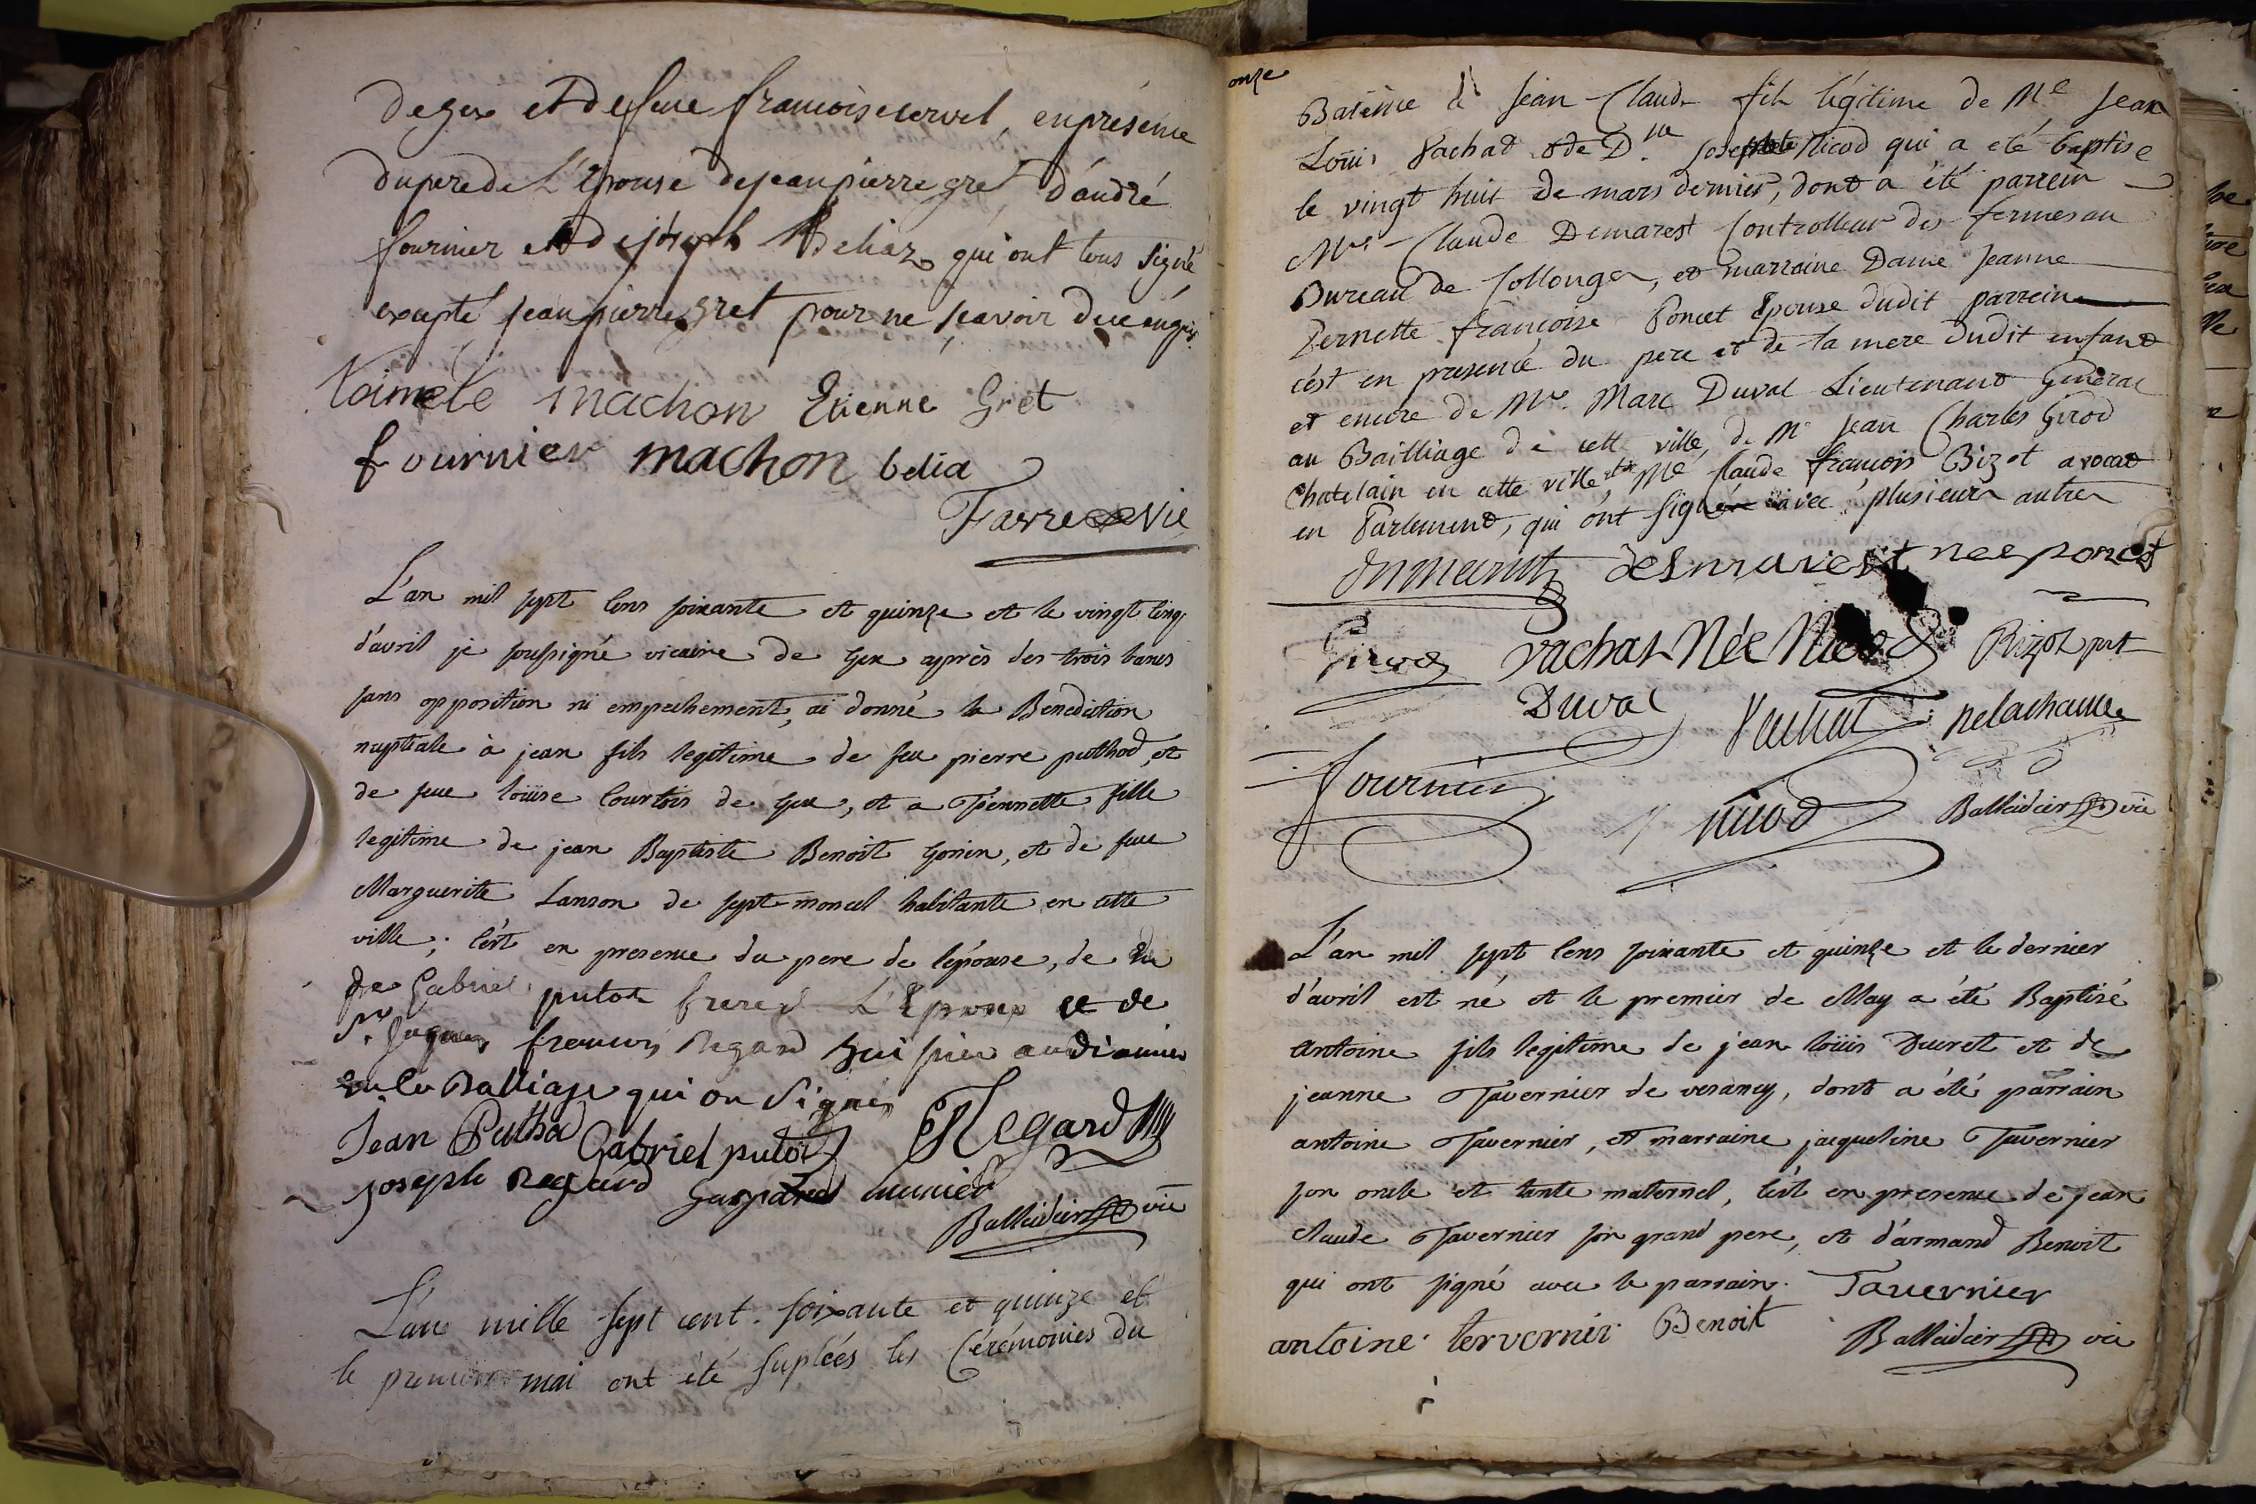 de gex et de feue francoise servel, en présence
du pere de l'Epouse de jean pierre gret d'andré
fournier et de joseph Beliaz qui ont tous signé
excepté jean pierre gret pour ne scavoir de ce enquis.
toinete machon Etienne Gret
fournier machon belia
Favre vic
L'an mil sept cens soixante et quinze et le vingt cinq
d'avril je soussigné vicaire de Gex après des trois bancs
sans opposition ni empechement, ai donné la Benediction
nuptiale à jean fils legitime de feu pierre puthod, et
de feue loüise Courtois de Gex, et a Pernette fille
legitime de jean Baptiste Benoit Gonin, et de feue
Marguerite Lanson de sept-moncel habitante en cette
ville; c'est en presence du pere de l'épouse, de
de Gabriel putot frere de L'Epoux et de
Sr. Jaques francois Regard huissier audiancier
en ce Balliage qui on Signés
Jean Puthod Gabriel putot Regard
joseph Regard Gaspard meunier
Balleidier vic
L'an mille sept cent soixante et quinze et
le premier mai ont été supléés les Cérémonies du
onze
Batême à Jean-Claude fils légitime de Me Jean
Loüis Vachat et de Dlle Josephte Nicod qui a eté baptise
le vingt huit de mars dernier, dont a été parrein
Mr. Claude Demarest Controlleur des fermes au
Bureau de Collonges, et marraine Dame Jeanne
Pernette françoise Poncet Epouse dudit parrein
c'est en presence du pere et de la mere dudit enfant
et encore de Mr. Marc Duval Lieutenant Général
au Bailliage de cette ville, de Mr Jean Charles Girod
Chatelain en cette ville et de Me Claude françois Bizot avocat
en Parlement, qui ont signé avec plusieurs autres
desmarest nee poncet
Girod vachat Née Nicod Bizot
Duval Vachat delachaux
fournier nicod Balleidier vic
L'an mil sept cens soixante et quinze et le dernier
d'avril est né et le premier de May a été Baptizé
antoine fils legitime de jean loüis Duret et de
jeanne Tavernier de vesancy, dont a été parrain
antoine Tavernier, et marraine jacqueline Tavernier
son oncle et tante maternel, c'est en presence de jean
claude Tavernier son grand pere, et d'armand Benoit
qui ont signé avec le parrain. Tavernier
antoine tervernier Benoit Balleidier vic